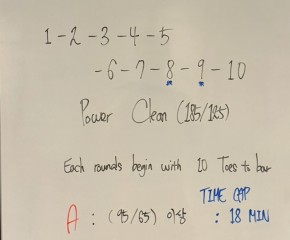 1-2-3-4-5
-6-7-8-9-10
Power Clean (185/125)
Each rounds begin with 10 Toes to bar
TIME CAP
A : (95/65) 이상 : 18 MIN